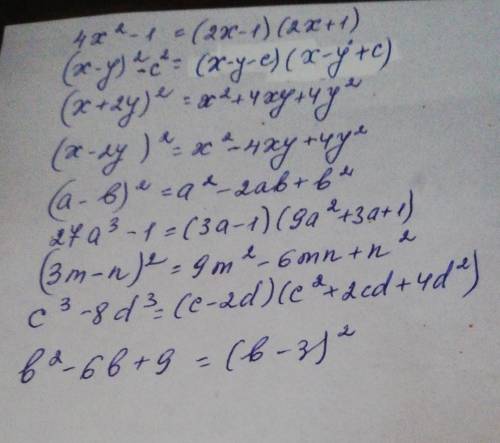 4x² - 1 = (2x-1)(2x+1)
(x-y)² - c² = (x-y-c)(x-y+c)
(x+2y)² = x²+4xy+4y²
(x-2y)² = x²-4xy+4y²
(a-в)² = a²-2aв+в²
27a³-1 = (3a-1)(9a²+3a+1)
(3m-n)² = 9m²-6mn+n²
c³-8d³ = (c-2d)(c²+2cd+4d²)
в²-6в+9 = (в-3)²